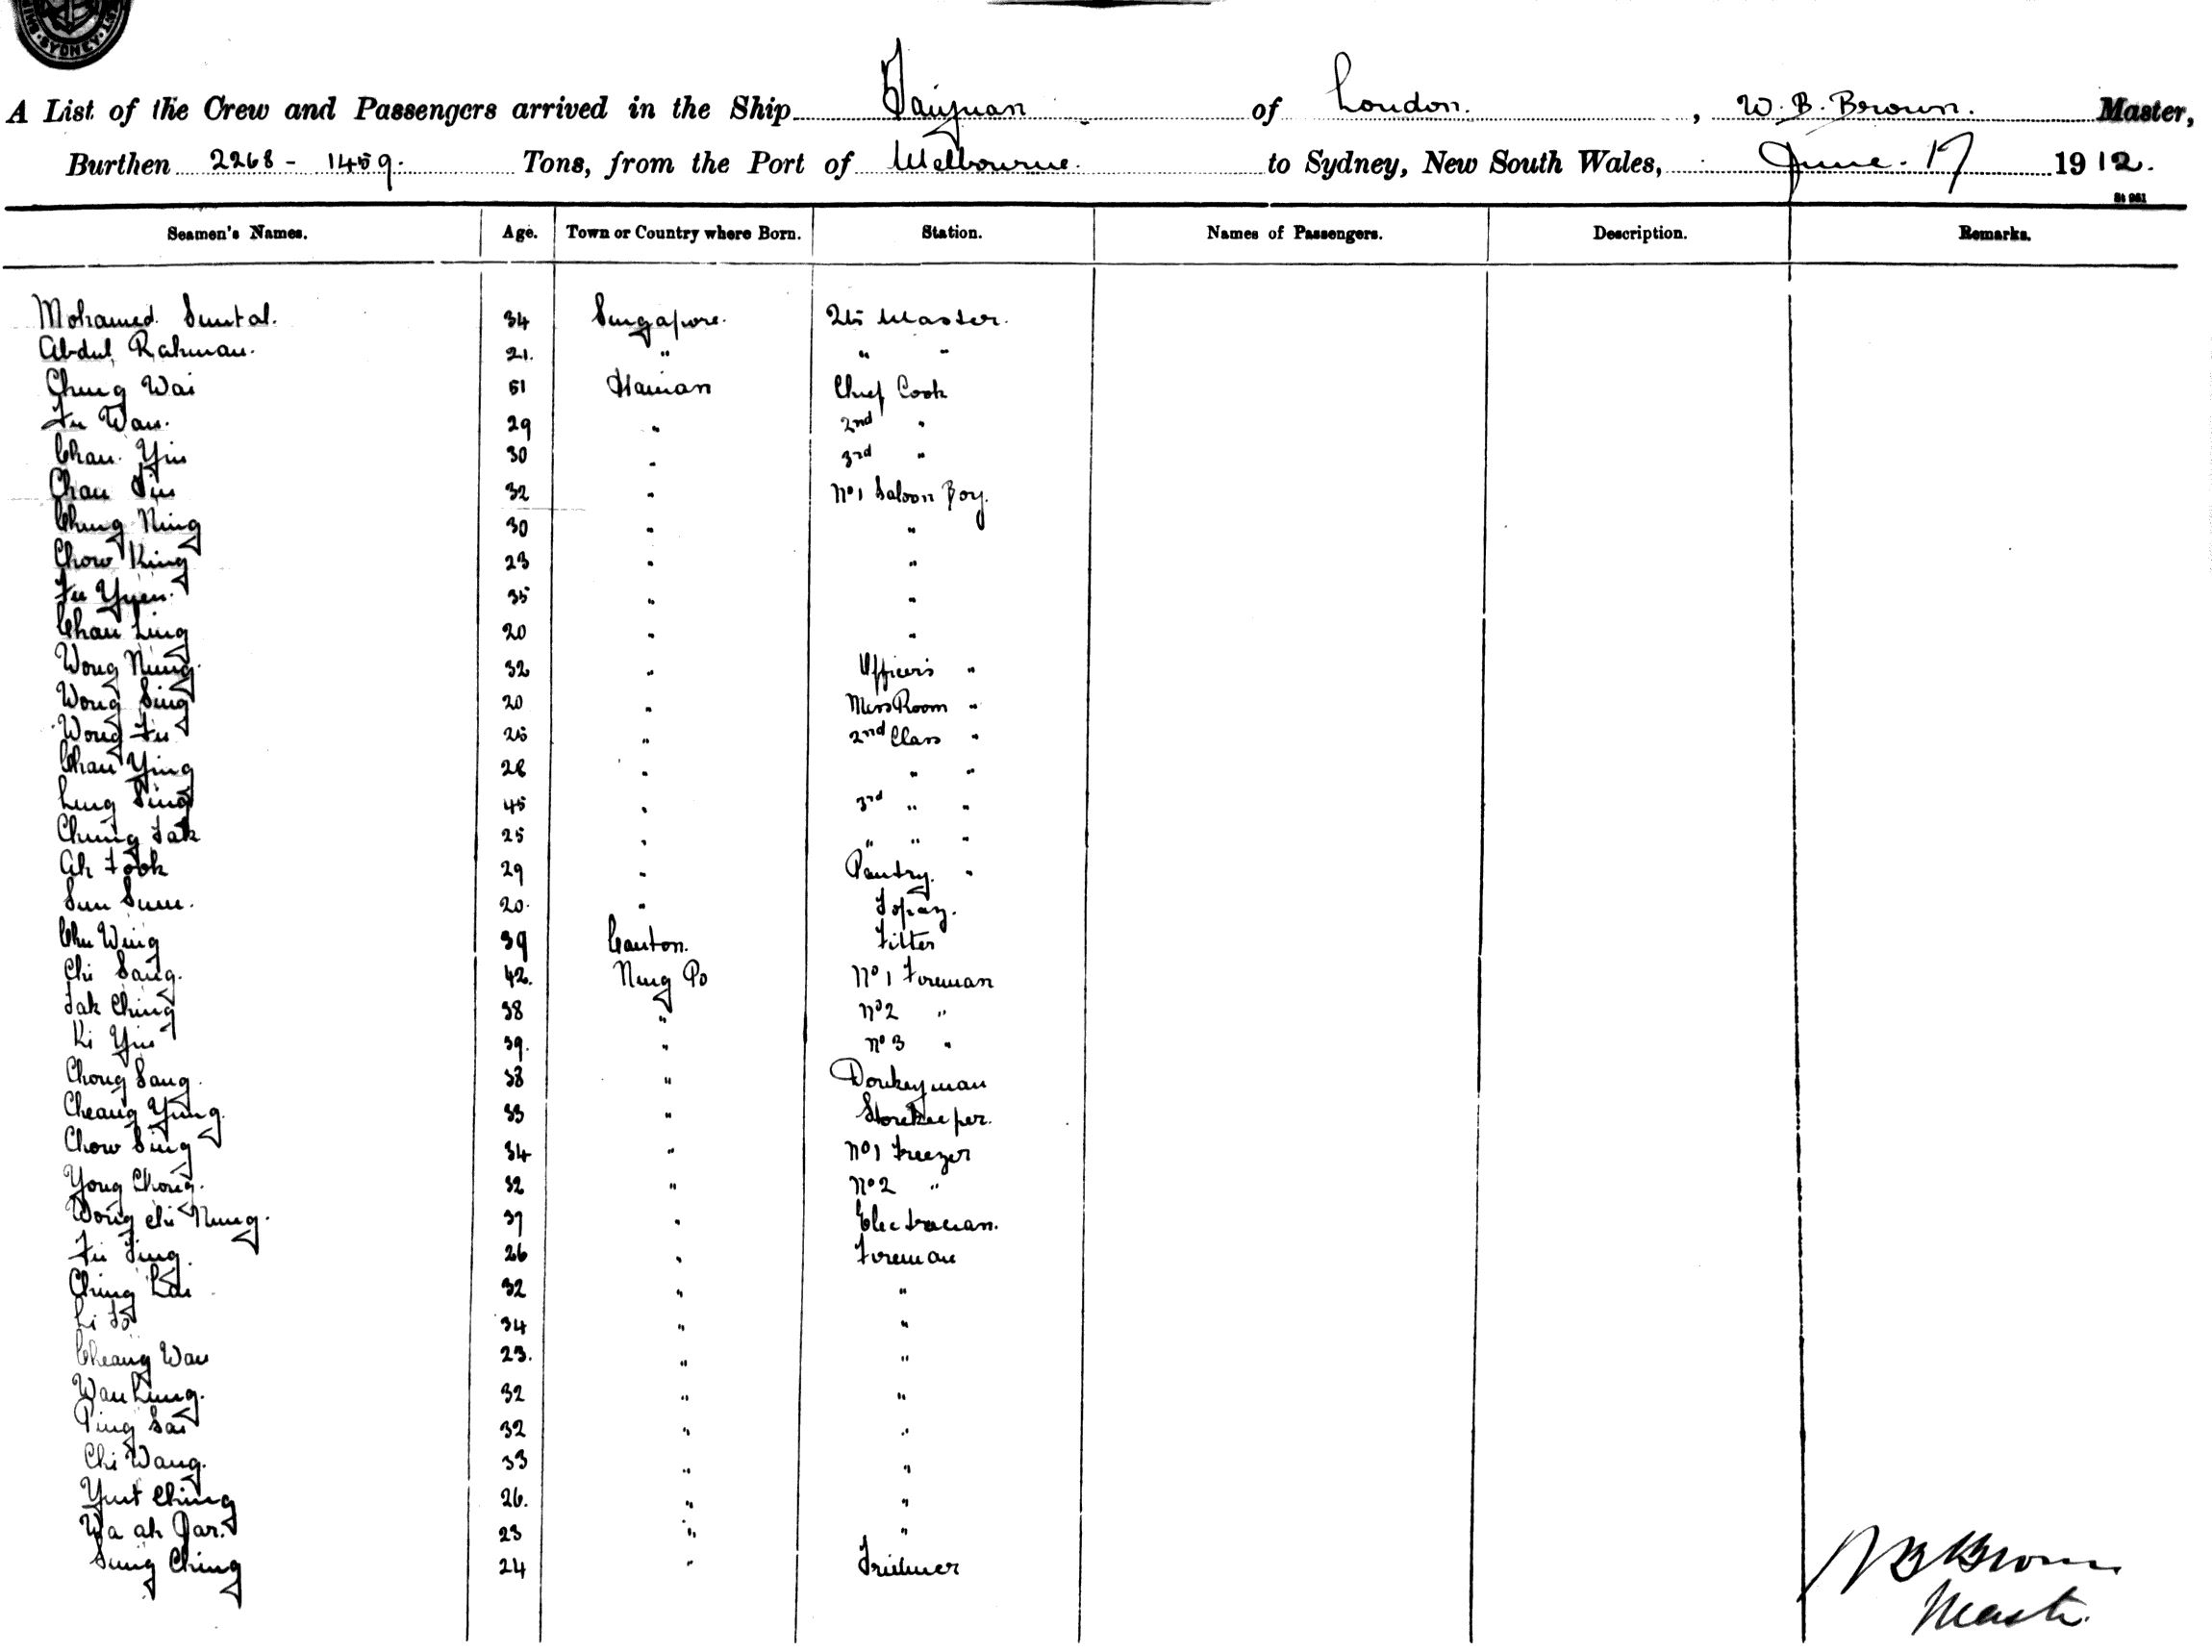 SYDNEY
A List of the Crew and Passengers arrived in the Ship Taiyuan of London. , W. B. Brown. Master,
Burthen 2268 - 1459. Tons, from the Port of Melbourne. to Sydney, New South Wales, June. 17 1912.
St 961
Seamen's Names. Age. Town or Country where Born. Station. Names of Passengers. Description. Remarks.
Mohamed 34 Singapore. Master.
Abdul Rahman. 21. " " "
Chung Wai 51 Hainan Chief Cook
Fu Wan. 29 " 2nd "
Chan Yin 30 " 3rd "
Chan 32 " No 1 Saloon Boy.
Chung Ning 30 " "
Chow King 23 " "
Fu Yuen. 35 " "
Chan Ling 20 " "
Wong Nung. 32 " Officers "
Wong Sing 20 " Mess Room "
Wong Fu 25 " 2nd Class "
Chan Ying 28 " " "
Lung Sing 45 " 3rd " "
Chung Tak 25 " " " "
Ah Fook 29 " Pantry. "
Sun 20. " Topaz.
Chu Wing 39 Canton. Fitter
Chi Sang. 42. Ning Po No 1 Foreman
Tak Ching 38 " No 2 "
Ki Yin 39. " No 3 "
Chong Sang. 38 " Donkeyman
Cheang Yung. 33 " Storekeeper.
Chow Sing 34 " No 1 Freezer
Yong Chong. 32 " No 2 "
Wong Chi Nung. 37 " Electracian.
Fu Ting. 26 " Foreman
Ching Lai 32 " "
Li To 34 " "
Cheang Wan 23. " "
Wan Lung. 32 " "
Ping Sai 32 " "
Chi Wang. 33 " "
Yut Ching 26. " "
Wa ah 23 " "
Sung Ching 24 " Trimmer
W B Brown
Master.